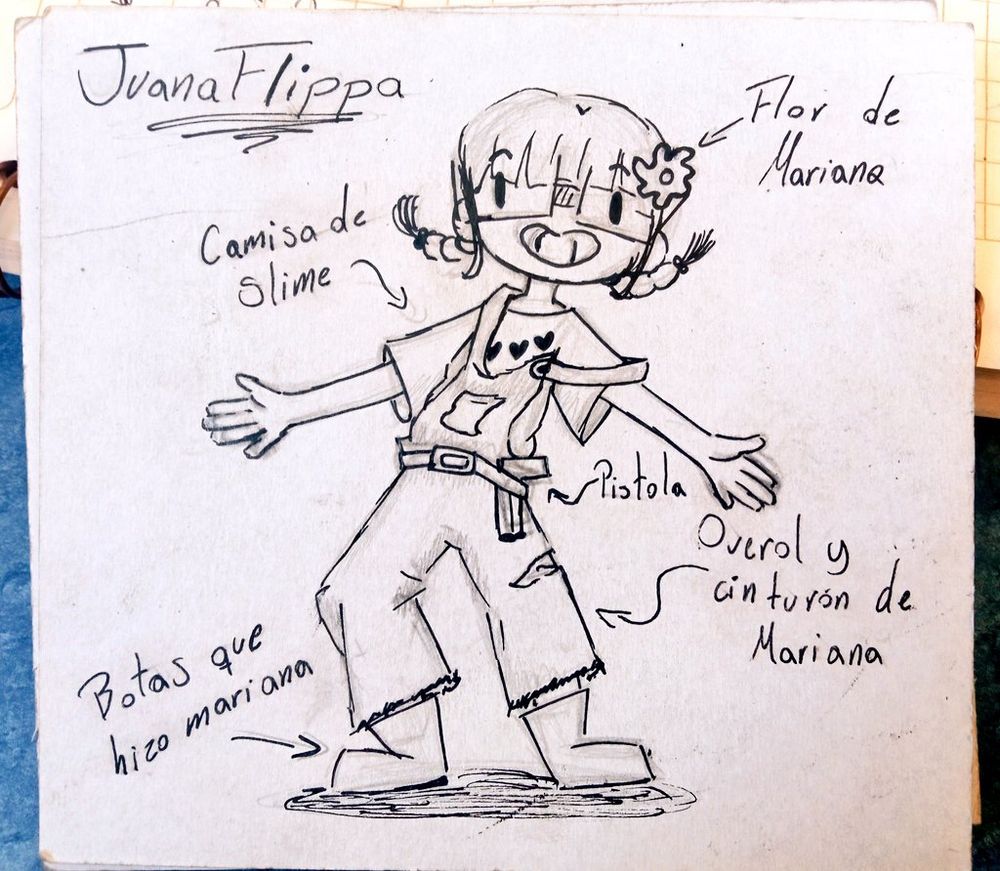 JuanaFlippa
Flor de
Mariana
Camisa de
slime
Pistola
Overol y
cinturón de
Mariana
Botas que
hizo mariana